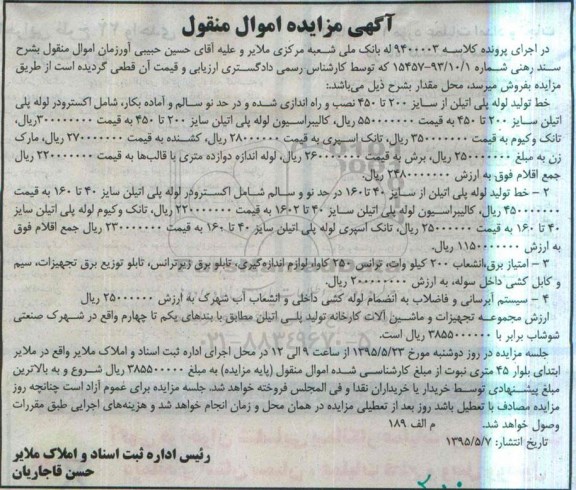 آگهی مزایده اموال منقول
در اجرای پرونده کلاسه ۹۴۰۰۰۰۳ له بانک ملی شعبه مرکزی ملایر و علیه آقای حسین حبیبی آورزمان اموال منقول بشرح
سند رهنی شماره ۹۳/۱۰/۱-۱۵۴۵۷ که توسط کارشناس رسمی دادگستری ارزیابی و قیمت آن قطعی گردیده است از طریق
مزایده بفروش میرسد، محل مقدار بشرح ذیل می‌باشد:
خط تولید لوله پلی اتیلن از سایز ۲۰۰ تا ۴۵۰ نصب و راه اندازی شده و در حد نو سالم و آماده بکار، شامل اکسترودر لوله پلی
اتیلن سایز ۲۰۰ تا ۴۵۰ به قیمت ۵۵۰۰۰۰۰۰۰ ریال، کالیبراسیون لوله پلی اتیلن سایز ۲۰۰ تا ۴۵۰ به قیمت ۳۰۰۰۰۰۰۰۰ریال،
تانک وکیوم به قیمت ۳۵۰۰۰۰۰۰۰ ریال، تانک اسپری به قیمت ۲۸۰۰۰۰۰۰۰ ریال، کشنده به قیمت ۲۷۰۰۰۰۰۰۰ ریال، مارک
زن به مبلغ ۲۵۰۰۰۰۰۰۰ ریال، برش به قیمت ۲۶۰۰۰۰۰۰۰ ریال، لوله اندازه دوازده متری با قالب‌ها به قیمت ۲۲۰۰۰۰۰۰۰ ریال
جمع اقلام فوق به ارزش ۲۴۸۰۰۰۰۰۰۰ ریال.
۲ - خط تولید لوله پلی اتیلن از سایز ۴۰ تا ۱۶۰ در حد نو و سالم شامل اکسترودر لوله پلی اتیلن سایز ۴۰ تا ۱۶۰ به قیمت
۴۵۰۰۰۰۰۰۰ ریال، کالیبراسیون لوله پلی اتیلن سایز ۴۰ تا ۱۶۰۲ به قیمت ۲۲۰۰۰۰۰۰۰ ریال، تانک وکیوم لوله پلی اتیلن سایز
۴۰ تا ۱۶۰ به قیمت ۲۵۰۰۰۰۰۰۰ ریال، تانک آسپری لوله پلی اتیلن سایز ۴۰ تا ۱۶۰ به قیمت ۲۳۰۰۰۰۰۰۰ ریال جمع اقلام فوق
به ارزش ۱۱۵۰۰۰۰۰۰۰ ریال.
۳ - امتیاز برق،انشعاب ۲۰۰ کیلو وات، ترانس ۲۵۰ کاوا، لوازم اندازه‌گیری، تابلو برق زیرترانس، تابلو توزیع برق تجهیزات، سیم
و کابل کشی داخل سوله، به ارزش ۲۰۰۰۰۰۰۰۰ ریال.
۴ - سیستم آبرسانی و فاضلاب به انضمام لوله کشی داخلی و انشعاب آب شهرک به ارزش ۲۵۰۰۰۰۰۰ ریال
ارزش مجموعه تجهیزات و ماشین آلات کارخانه تولید پلی اتیلن مطابق با بندهای یکم تا چهارم واقع در شهرک صنعتی
شوشاب برابر با ۳۸۵۵۰۰۰۰۰۰ ریال است.
جلسه مزایده در روز دوشنبه مورخ ۱۳۹۵/۵/۲۳ از ساعت ۹ الی ۱۲ در محل اجرای اداره ثبت اسناد و املاک ملایر واقع در ملایر
ابتدای بلوار ۴۵ متری نبوت از مبلغ کارشناسی شده اموال منقول (پایه مزایده) به مبلغ ۳۸۵۵۰۰۰۰۰۰ ریال شروع و به بالاترین
مبلغ پیشنهادی توسط خریدار یا خریداران نقدا و فی المجلس فروخته خواهد شد. جلسه مزایده برای عموم آزاد است چنانچه روز
مزایده مصادف با تعطیل باشد روز بعد از تعطیلی مزایده در همان محل و زمان انجام خواهد شد و هزینه‌های اجرایی طبق مقررات
وصول خواهد شد. م الف ۱۸۹
تاریخ انتشار: ۱۳۹۵/۵/۷
رئیس اداره ثبت اسناد و املاک ملایر
حسن قاجاریان